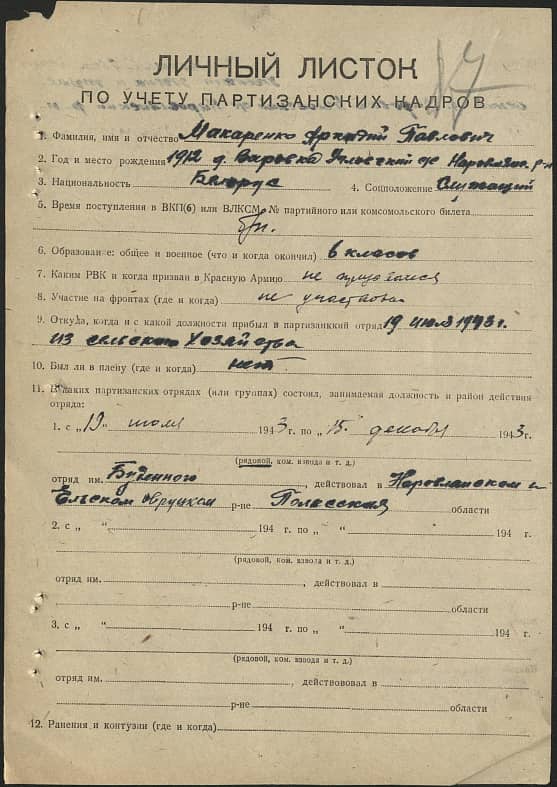 ЛИЧНЫЙ ЛИСТОК
ПО УЧЕТУ ПАРТИЗАНСКИХ КАДРОВ
1. Фамилия, имя и отчество Макаренко Аркадий Павлович
2. Год и место рождения 1912 д. Варовка
3. Национальность Белорус 4. Соцположение Служащий
5. Время поступления в ВКП(б) или ВЛКСМ, № партийного или комсомольского билета
б/п.
6. Образование: общее и военное (что и когда окончил) 6 класов
7. Каким РВК и когда призван в Красную Армию не
8. Участие на фронтах (где и когда) не участвовал
9. Откуда, когда и с какой должности прибыл в партизанский отряд 19 июля 1943 г.
из сельского хозяйства
10. Был ли в плену (где и когда) нет
11. В каких партизанских отрядах (или группах) состоял, занимаемая должность и район действия
отряда:
1. с „19" июля 1943 г. по „15" декабря 1943 г.
(рядовой, ком. взвода и т. д.)
отряд им. Буденного, действовал в Наровлянском и
Ельском Овруцком р-не Полесская области
2. с „ " 194 г. по „ " 194 г.
(рядовой, ком. взвода и т. д.)
отряд им. , действовал в
р-не области
3. с „ " 194 г. по „ " 194 г.
(рядовой, ком. взвода и т. д.)
отряд им. , действововал в
р-не области
12. Ранения и контузии (где и когда)